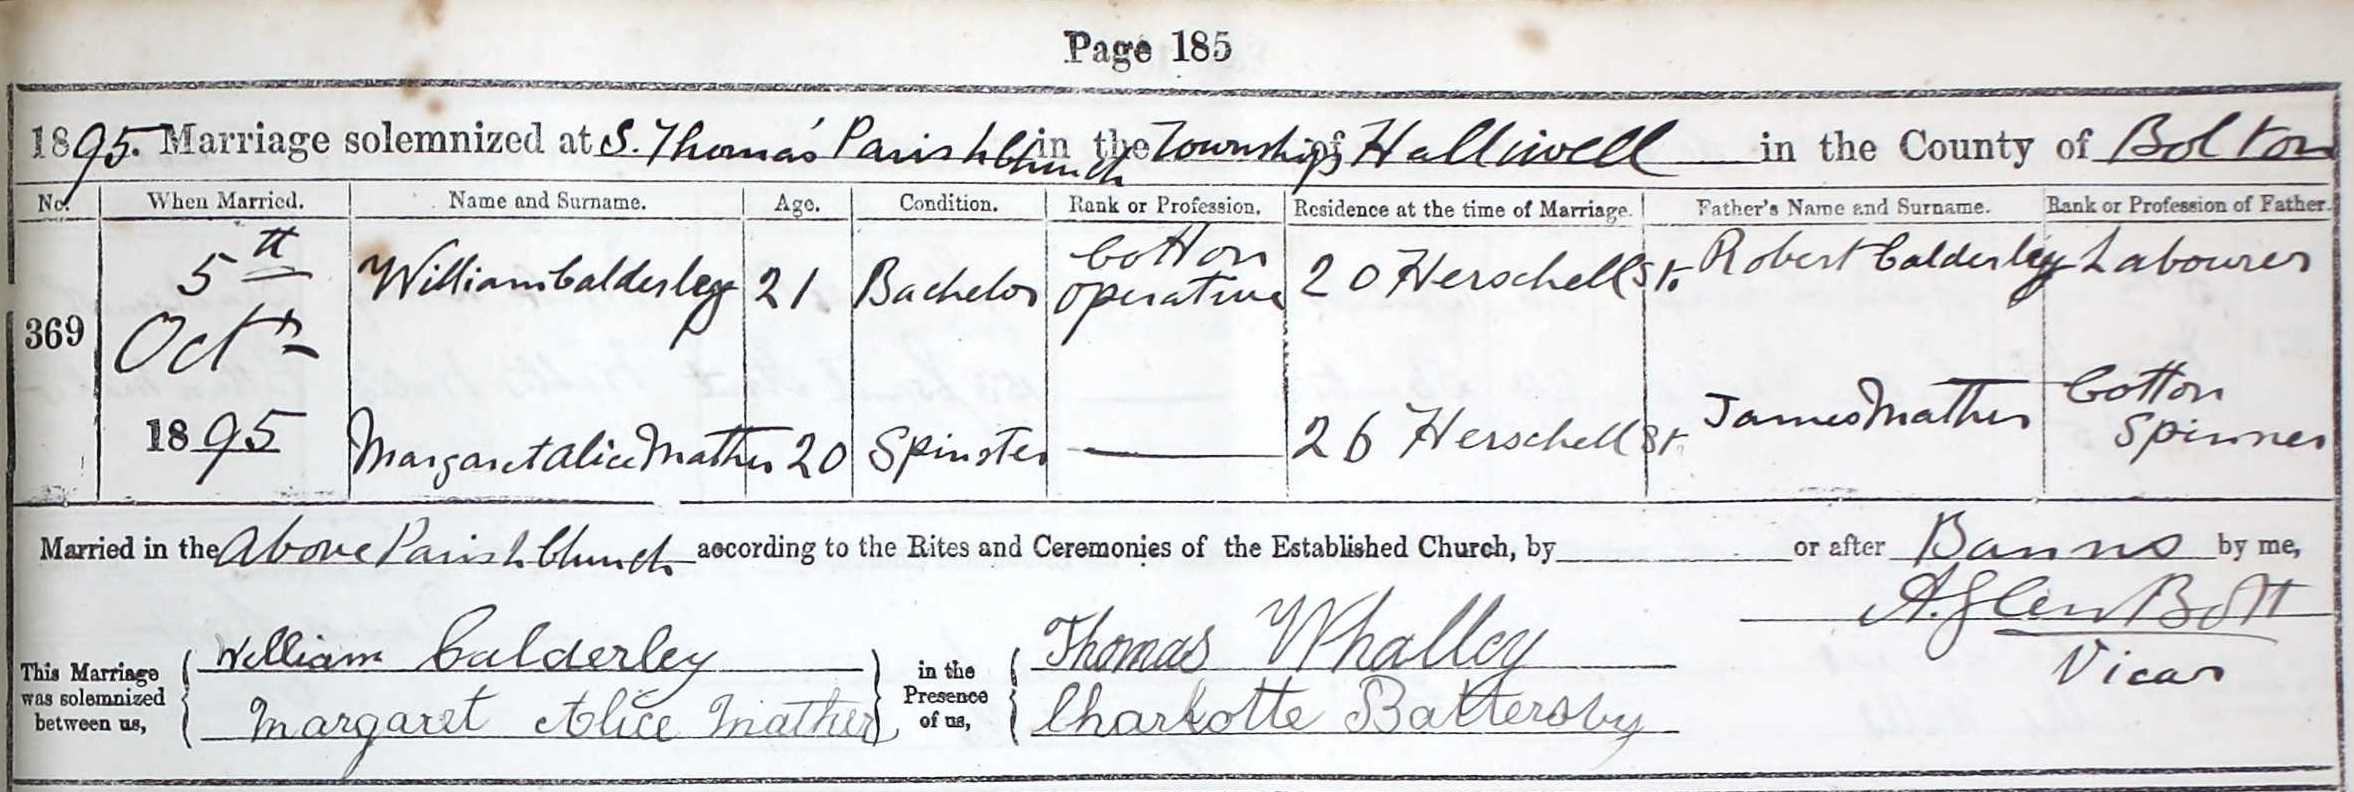 Page 185
1895. Marriage solemnized at S. Thomas' Parish Church in the Township of Halliwell in the County of Bolton
No. When Married. Name and Surname. Age. Condition. Rank or Profession. Residence at the time of Marriage. Father's Name and Surname. Rank or Profession of Father.
369 5th Octr 1895 William Calderley 21 Bachelor Cotton operative 20 Herschell St. Robert Calderley Labourer
Margaret Alice Mather 20 Spinster — 26 Herschell St. James Mather Cotton Spinner
Married in the above Parish Church according to the Rites and Ceremonies of the Established Church, by or after Banns by me,
A. Glen Bott
Vicar
This Marriage was solemnized between us, William Calderley in the Presence of us, Thomas Whalley
Margaret Alice Mather Charlotte Battersby